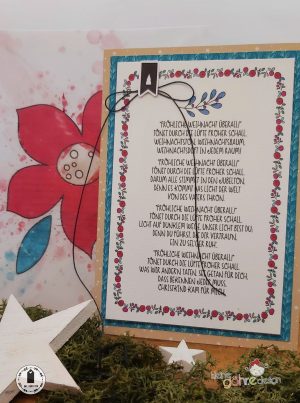 "FRÖHLICHE WEIHNACHT ÜBERALL!"
TÖNET DURCH DIE LÜFTE FROHER SCHALL.
WEIHNACHTSTON, WEIHNACHTSBAUM,
WEIHNACHTSDUFT IN JEDEM RAUM!
"FRÖHLICHE WEIHNACHT ÜBERALL!"
TÖNET DURCH DIE LÜFTE FROHER SCHALL.
DARUM ALLE STIMMET IN DEN JUBELTON,
DENN ES KOMMT DAS LICHT DER WELT
VON DES VATERS THRON.
"FRÖHLICHE WEIHNACHT ÜBERALL!"
TÖNET DURCH DIE LÜFTE FROHER SCHALL.
LICHT AUF DUNKLEM WEGE, UNSER LICHT BIST DU;
DENN DU FÜHRST, DIE DIR VERTRAU'N,
EIN ZU SEL'GER RUH'.
"FRÖHLICHE WEIHNACHT ÜBERALL!"
TÖNET DURCH DIE LÜFTE FROHER SCHALL.
WAS WIR ANDERN TATEN, SEI GETAN FÜR DICH,
DASS BEKENNEN JEDER MUSS,
CHRISTKIND KAM FÜR MICH.
kleine
göhre design